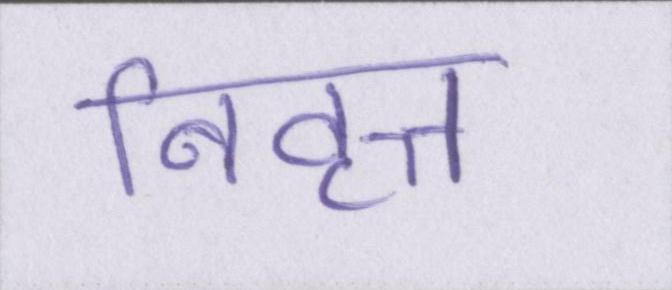 निवृत्त